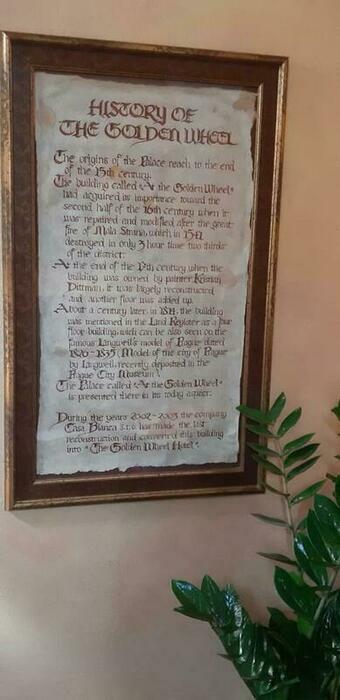 HISTORY OF
THE GOLDEN WHEEL
The origins of the Palace reach to the end
of the 15th century.
The building called "At the Golden Wheel"
had acquired as importance toward the
second half of the 16th century when it
was repaired and modified after the great
fire of Mala Strana, which in 1541
destroyed in only 3 hour time two thirds
of the district.
At the end of the 17th century when the
building was owned by painter Kristian
Dittman, it was largely reconstructed
and another floor was added up.
About a century later, in the building
was mentioned in the Land Register as a four
floor building, which can be also seen on the
famous Langweil's model of Prague dated
1826-1835 Model of the city of Prague
by Langweil, recently deposited in the
Prague City Museum
The Palace called "At the Golden Wheel"
is presented there in its today aspect.
During the years 2002-2003 the company
Casa Blanca s.r.o. has made the last
reconstruction and converted this building
into "The Golden Wheel Hotel".